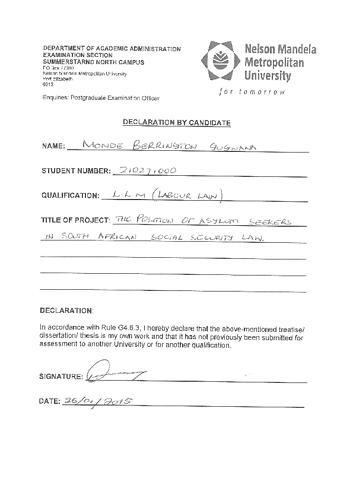 DEPARTMENT OF ACADEMIC ADMINISTRATION
EXAMINATION SECTION
SUMMERSTARND NORTH CAMPUS
PO Box 77000
Nelson Mandela Metropolitan University
Port Elizabeth
6013
Enquiries: Postgraduate Examination Officer
Nelson Mandela
Metropolitan
University
for tomorrow
DECLARATION BY CANDIDATE
NAME: MONDE BERRINGTON GUGWANA
STUDENT NUMBER: 210271000
QUALIFICATION: L.L.M (LABOUR LAW)
TITLE OF PROJECT: THE POSITION OF ASYLUM SEEKERS
IN SOUTH AFRICAN SOCIAL SECURITY LAW.
DECLARATION:
In accordance with Rule G4.6.3, I hereby declare that the above-mentioned treatise/
dissertation/ thesis is my own work and that it has not previously been submitted for
assessment to another University or for another qualification.
SIGNATURE:
DATE: 26/01/2015